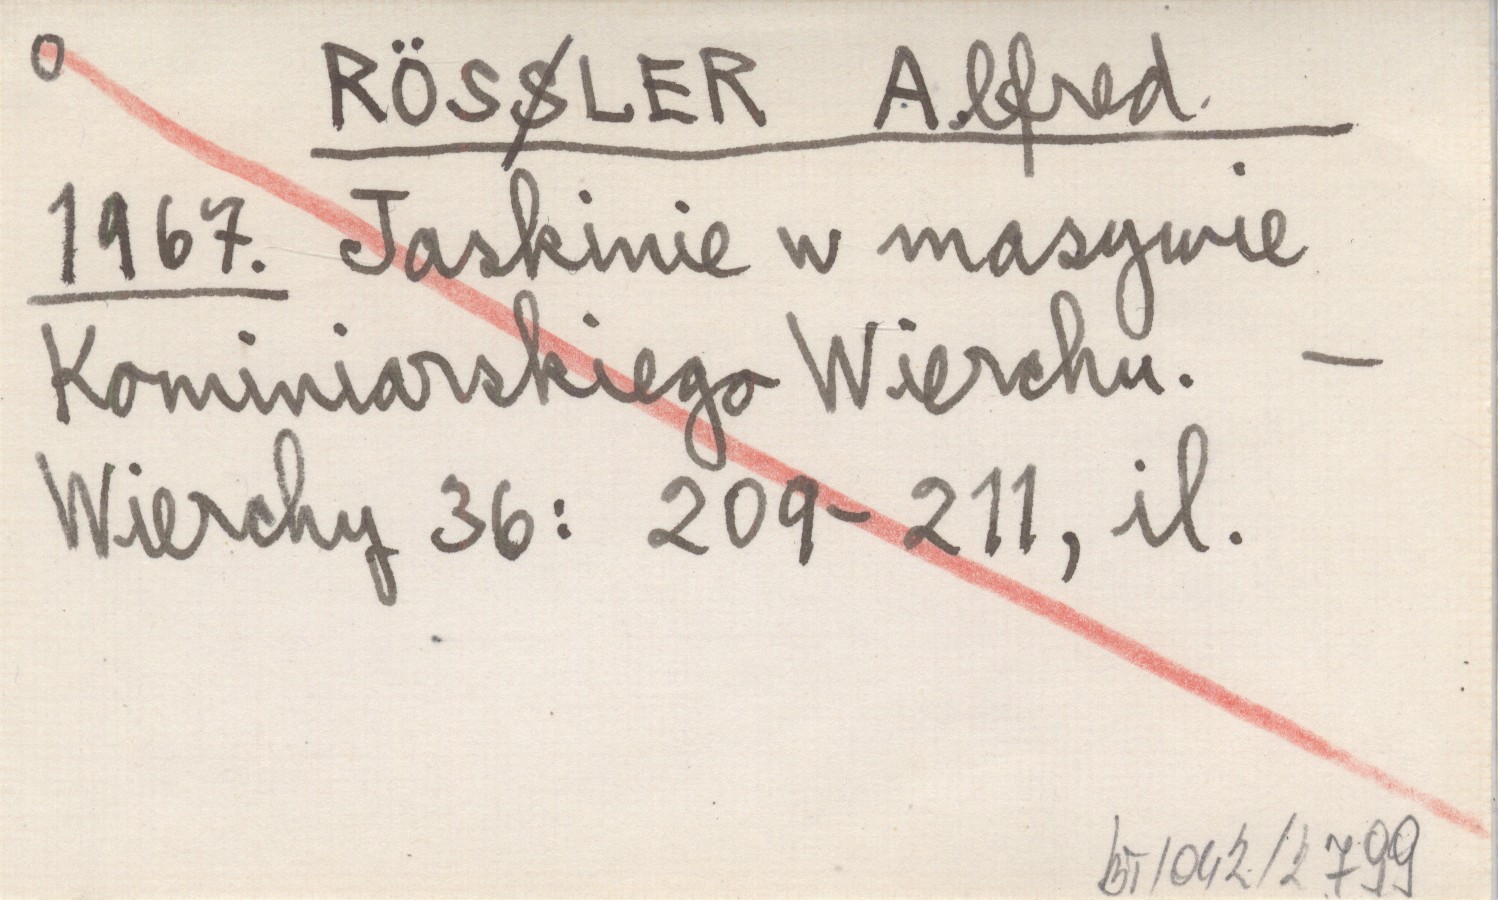 O
RÖSSLER Alfred.
1967. Jaskinie w masywie
Kominiarskiego Wierchu. —
Wierchy 36: 209-211, il.
BT/042/2799